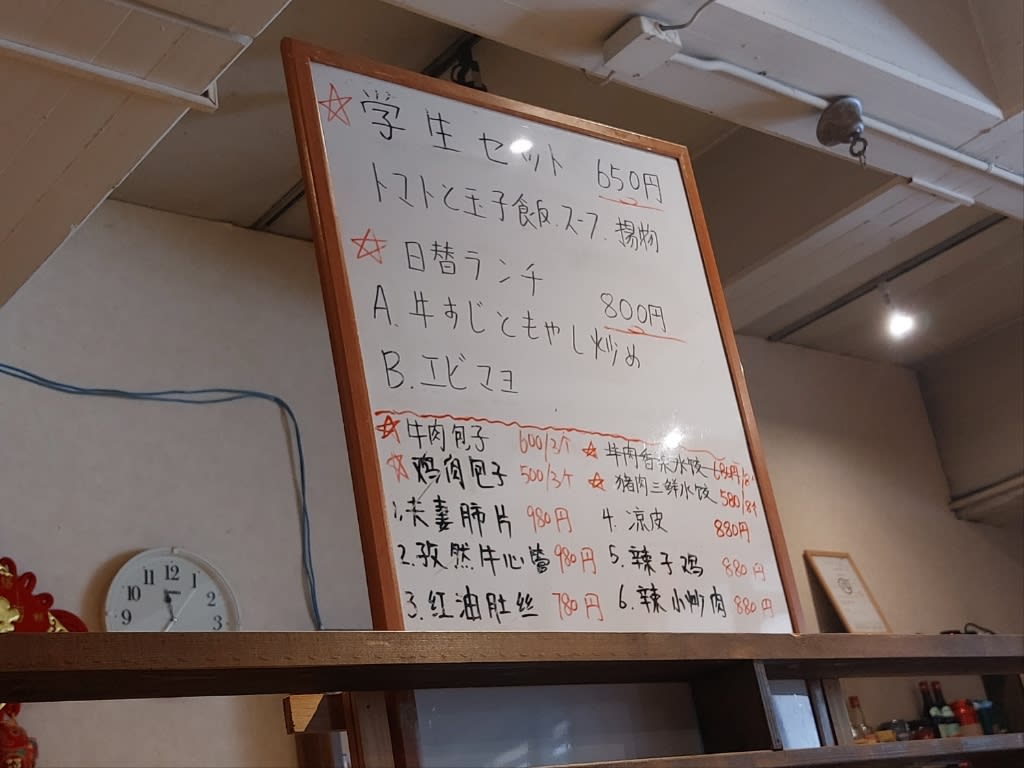 ☆学生セット 650円
トマトと玉子飯.スープ.揚物
☆日替ランチ
800円
A.牛すじともやし炒め
B.エビマヨ
☆牛肉包子 600/3个
☆牛肉香菜水饺
☆鸡肉包子 500/3个
☆猪肉三鲜水饺 580/8个
1.夫妻肺片 980円
4.凉皮 880円
2.孜然牛心管 980円
5.辣子鸡 880円
3.红油肚丝 780円
6.辣小炒肉 880円
10 11 12 1 2
9 3